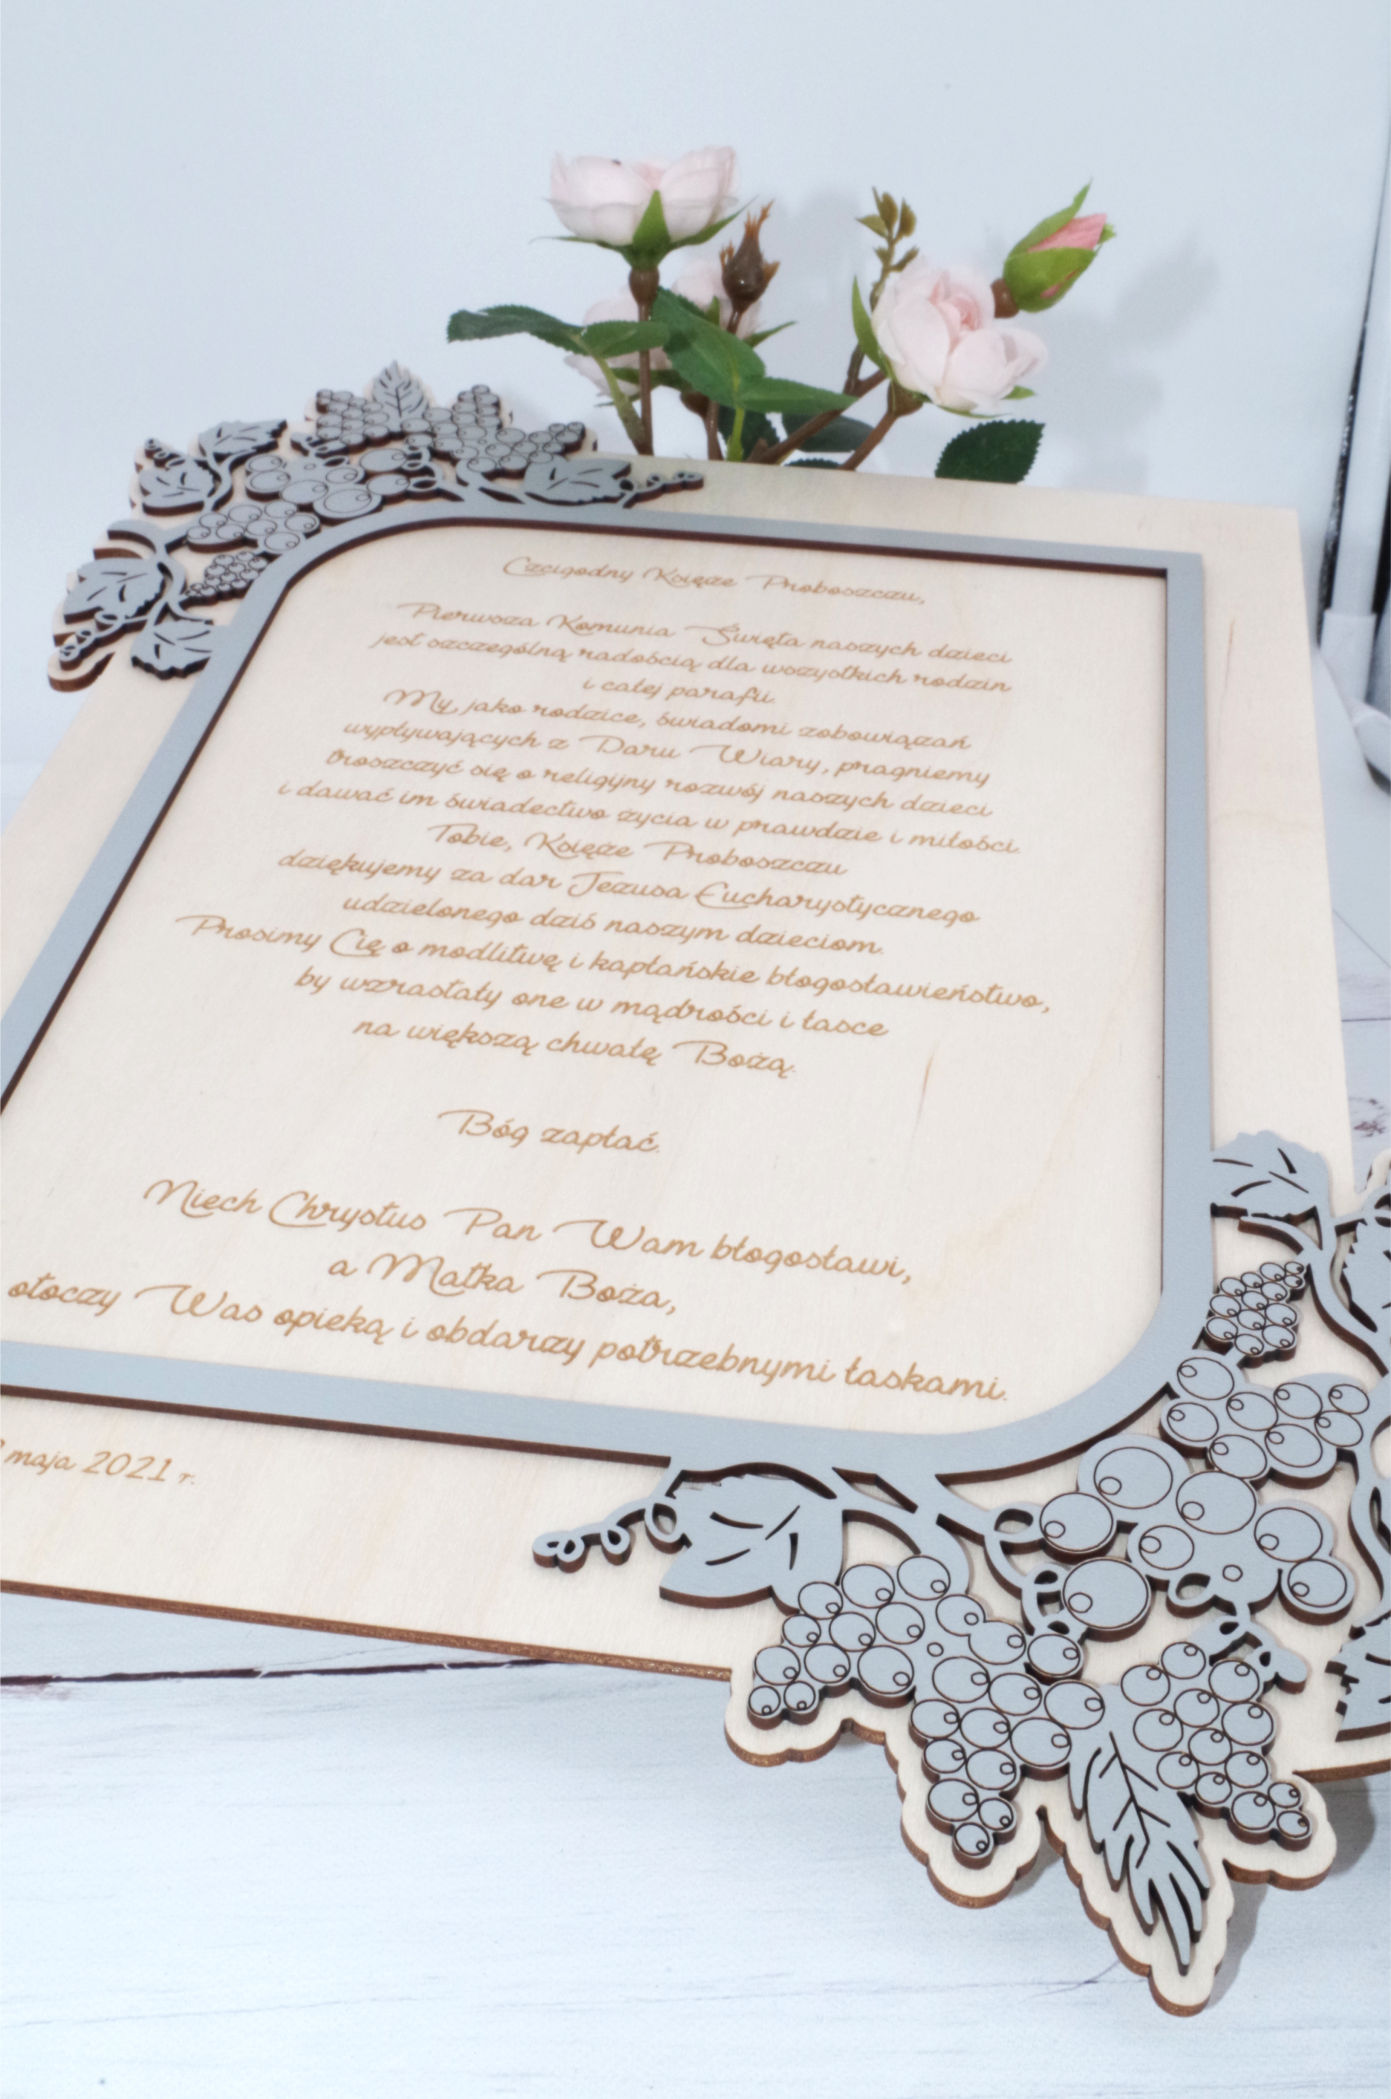 Czcigodny Księże Proboszczu,
Pierwsza Komunia Święta naszych dzieci
jest szczególną radością dla wszystkich rodzin
i całej parafii.
My, jako rodzice, świadomi zobowiązań
wypływających z Daru Wiary, pragniemy
troszczyć się o religijny rozwój naszych dzieci
i dawać im świadectwo życia w prawdzie i miłości.
Tobie, Księże Proboszczu
dziękujemy za dar Jezusa Eucharystycznego
udzielonego dziś naszym dzieciom.
Prosimy Cię o modlitwę i kapłańskie błogosławieństwo,
by wzrastały one w mądrości i łasce
na większą chwałę Bożą.
Bóg zapłać.
Niech Chrystus Pan Wam błogosławi,
a Matka Boża,
otoczy Was opieką i obdarzy potrzebnymi łaskami.
maja 2021 r.